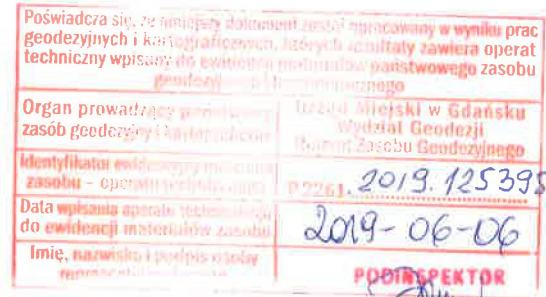 Poświadcza się, że niniejszy dokument został opracowany w wyniku prac
geodezyjnych i kartograficznych, których rezultaty zawiera operat
techniczny wpisany do ewidencji materiałów państwowego zasobu
geodezyjnego i kartograficznego
Organ prowadzący państwowy
zasób geodezyjny i kartograficzny
Urząd Miejski w Gdańsku
Wydział Geodezji
Zasobu Geodezyjnego
Identyfikator ewidencyjny materiału
zasobu – operatu technicznego
P.2261.2019.125398
Data wpisania operatu technicznego
do ewidencji materiałów zasobu
2019-06-06
Imię, nazwisko i podpis osoby
PODINSPEKTOR